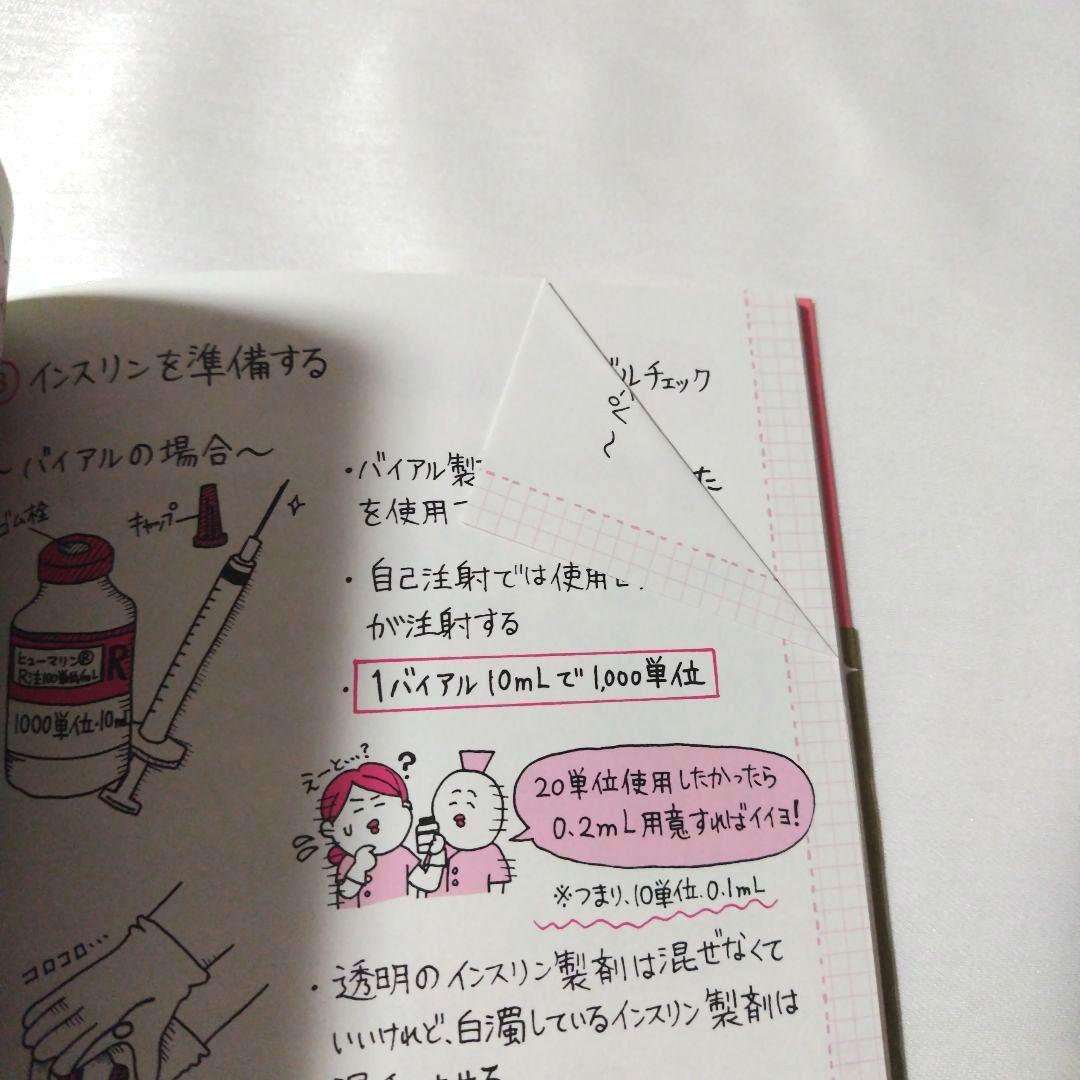 インスリンを準備する
バイアルの場合〜
ゴム栓
キャップ
ヒューマリン®
R注100単位/mL
R
1000単位・10mL
コロコロ…
ルチェック
〜
た
・バイアル製
を使用
・自己注射では使用
が注射する
・1バイアル10mLで1,000単位
えーと…?
?
20単位使用したかったら
0.2mL用意すればイイヨ!
※つまり、10単位、0.1mL
・透明のインスリン製剤は混ぜなくて
いいけれど、白濁しているインスリン製剤は